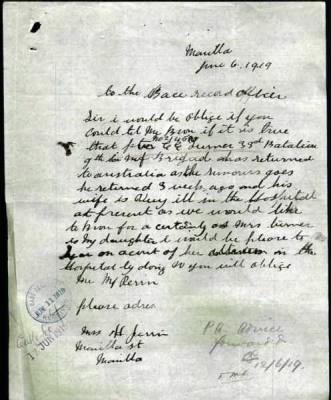 Manilla
June 6. 1919
to the Bace record officer
Sir i would be oblige if you
Could tel My Kron if it is true
that pva C E Turner 33rd Batalion
9th Inf Brigad has returned
to australia as the rumours goes
he returned 3 week ago and his
wife is Very ill in the Hospital
at present as we would like
to kron for a certainty as Mrs turner
is My daughter i would be please to
on acount of her in the
Hospital by doing so you will oblige
Me Mrs Perrin
please adres
Mrs Perrin
Manilla st
Manilla
P.A. Advice
forward.d
12/6/19.
JUN 1919